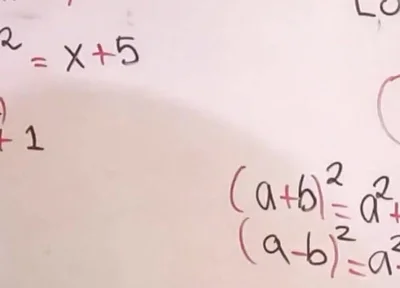 ² = x+5
+ 1
(a+b)² = a²+
(a-b)² = a²-